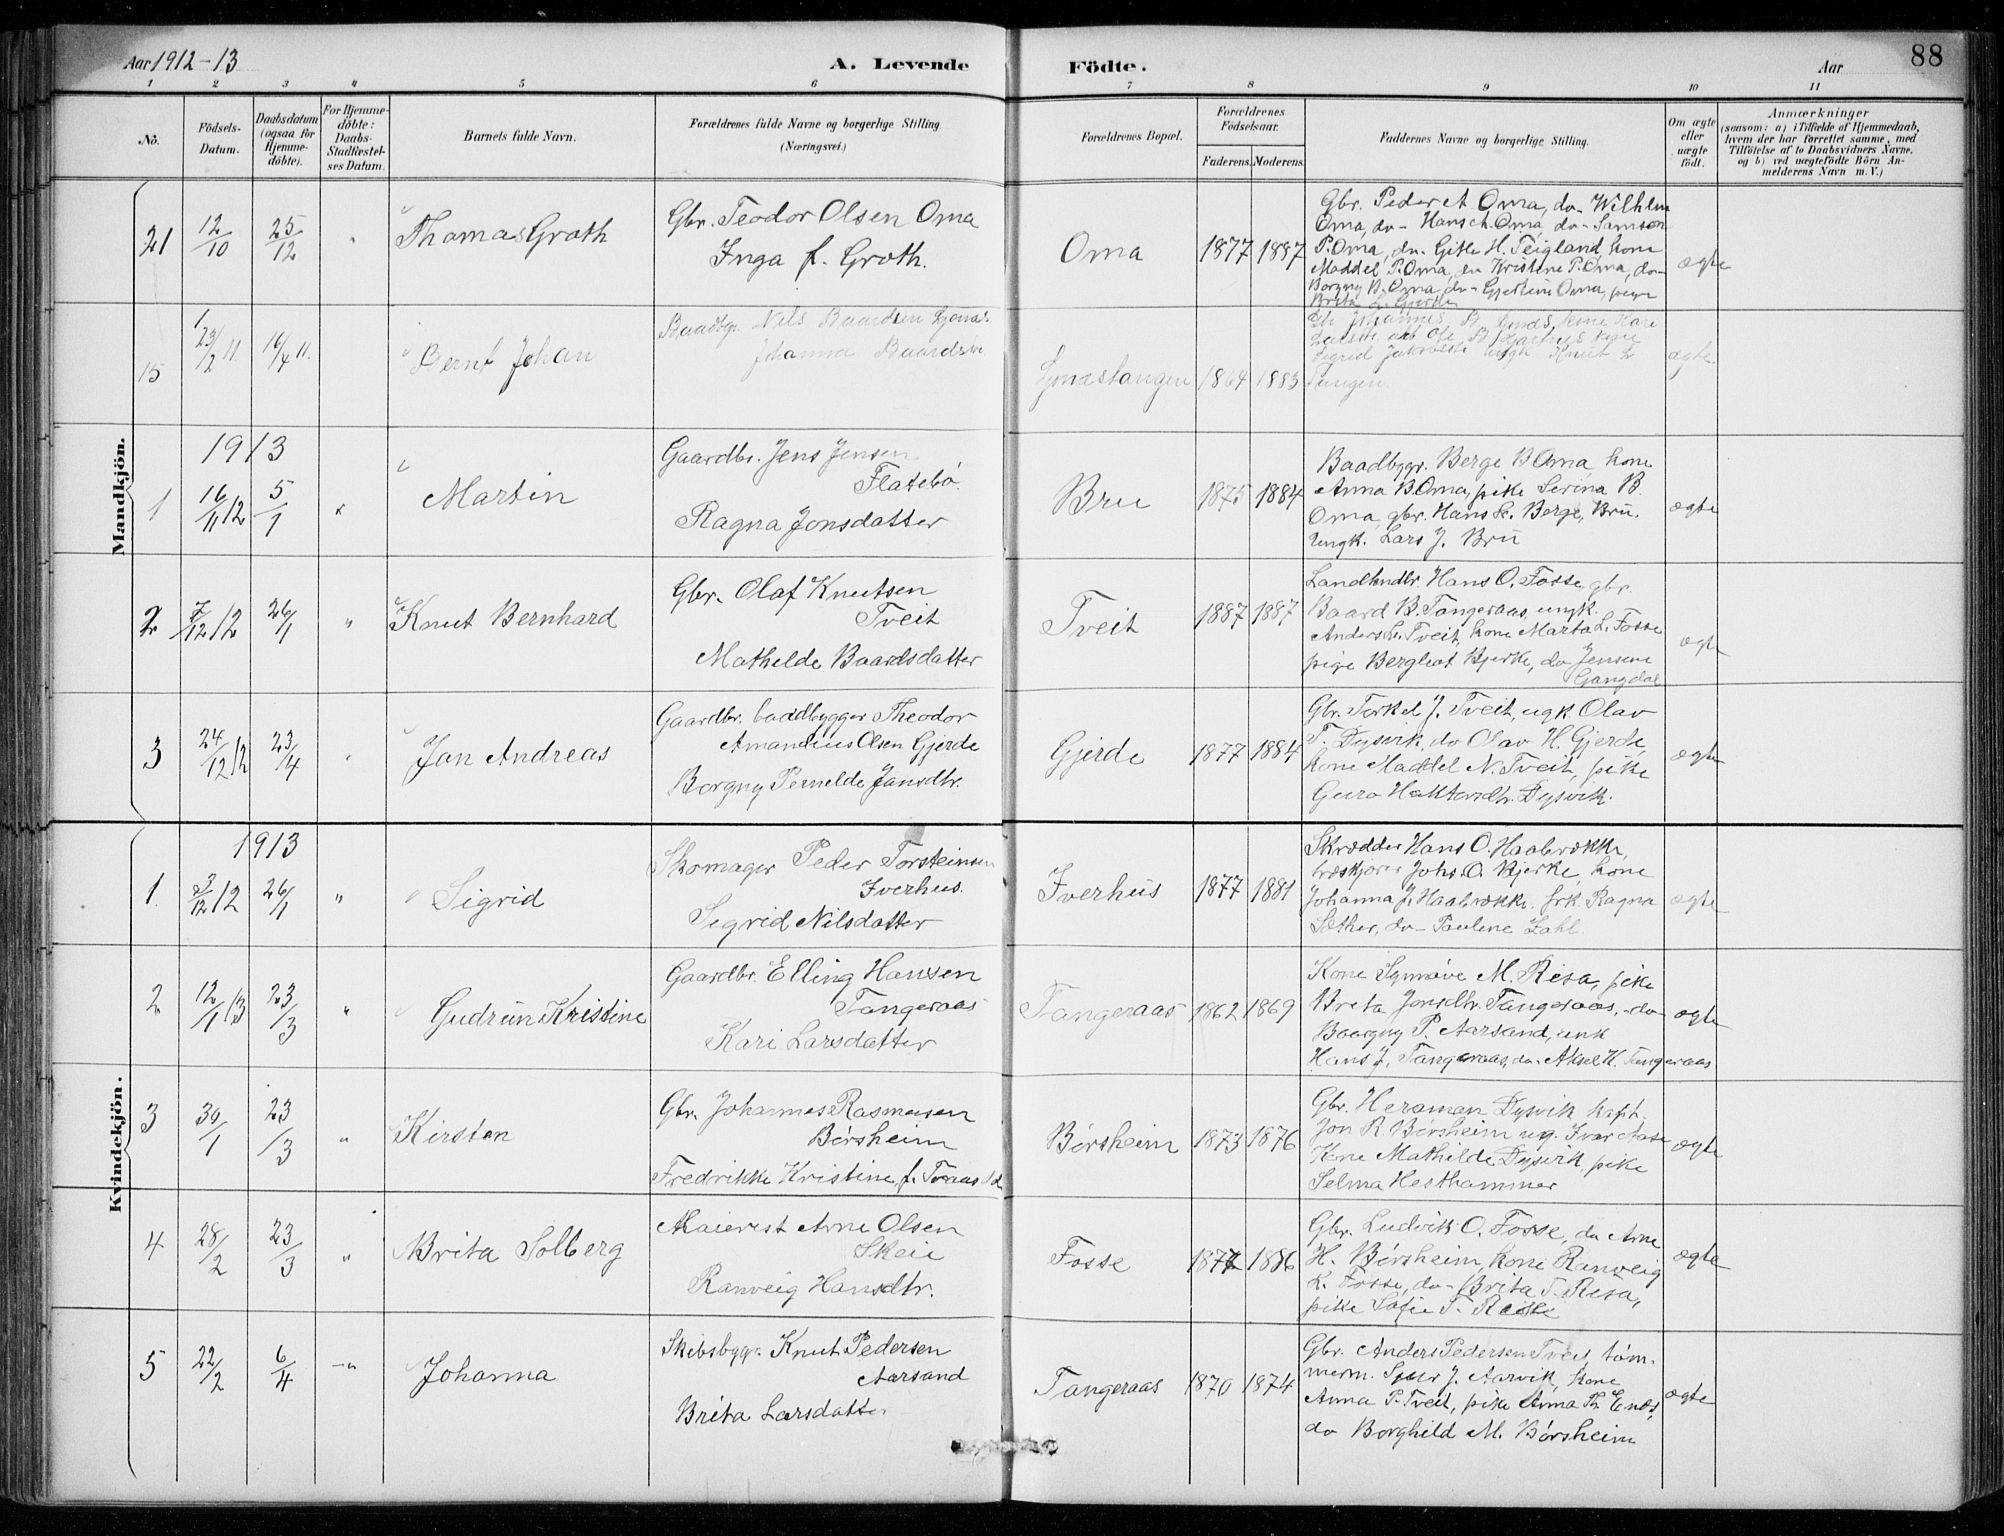 Aar 1912-13
A. Levende
Födte.
Aar
88
1 2 3 4 5 6 7 8 9 10 11
No.
Födsels-Datum.
Daabsdatum (ogsaa for Hjemme-döbte).
For Hjemme-döbte: Daabs-Stadfæstel-ses Datum.
Barnets fulde Navn.
Forældrenes fulde Navne og borgerlige Stilling. (Næringsvei.)
Forældrenes Bopæl.
Forældrenes Födselsaar.
Faderens. Moderens.
Faddernes Navne og borgerlige Stilling.
Om ægte eller uægte födt.
Anmærkninger
(saasom: a) i Tilfælde af Hjemmedaab, hvem der har forrettet samme, med Tilföielse af to Daabsvidners Navne, og b) ved uægtefödte Börn Anmelderens Navn m. V.)
Mandkjön.
21 12/10 25/12 " Thomas Groth
Gbr. Teodor Olsen Oma
Inga f. Groth.
Oma 1877 1887
Gbr. Peder et Oma, do- Wilhlm
Oma, do- Hans ch. Oma, do- Samson
P. Oma, do- Gitle H. Teigland, kone
Maddel P. Oma, do Kristine P. Oma, do-
Borgny B. Oma, do- Gjertine Oma, pige
Brita L. Gjerde
ægte
15 23/2 11 16/4 11. Bernt Johan
Baadbgr. Nils Baardsen
Johanna Baardsdtr
1864 1883
Tangen.
ægte
1913
1 16/11 12 5/1 " Martin
Gaardbr. Jens Jensen
Flatebö.
Ragna Jonsdatter
Bru 1875 1884
Baadbyggr. Berge B Oma, kone
Anna B. Oma, pike Serina B.
Oma, gbr. Hans L. Berge, Brü.
Ungk. Lars J. Brü
ægte
2 7/12 12 26/1 " Knut Bernhard
Gbr. Olaf Knutsen
Tveit
Mathelde Baardsdatter
Tveit 1887 1887
Landhndlr. Hans O. Fosse, gbr.
Baard B. Tangeraas, ungk.
Anders L. Tveit, kone Marta L. Fosse
pige Bergliot Bjerke, do Jensine
Gangdal
ægte
3 24/12 12 23/4 " Jan Andreas
Gaardbr. baadbygger Theodor
Amandius Olsen Gjerde
Borgny Pernelde Jansdtr.
Gjerde 1877 1884
Gbr. Torkel J. Tveit, ugk Olav
T. Dysvik, do Olav H. Gjerde,
kone Maddel N. Tveit, pike
Guro Haktorsdtr. Dysvik.
ægte
Kvindekjön.
1913
1. 3/12 12 26/1 " Sigrid
Skomager Peder Torsteinsen
Iverhus.
Sigrid Nilsdatter
Iverhüs 1877 1881
Skrædder Hans O. Haabrække,
træskjærer Johs. O. Bjerke, kone
Johanna J. Haabrække. frk Ragna
Sæther, do- Pauline Zahl.
ægte
2 12/1 13 23/3 " Gudrün Kristine
Gaardbr. Elling Hansen
Tangeraas
Kari Larsdatter
Tangeraas 1862 1869
Kone Synnöve M. Resa, pike
Brita Jonsdtr. Tangeraas, do-
Baargny P. Aarsand, unk
Hans J. Tangeraas, do- Aksel H. Tangeraas
ægte
3 30/1 23/3 " Kirsten
Gbr. Johannes Rasmusen
Börsheim
Fredrikke Kristine f.
Börsheim 1873 1876
Gbr. Herman Dysvik kapt.
Jon R. Börsheim ug. Ivar Aase
Kone Mathilde Dysvik, pike
Selma Hesthammer
ægte
4 28/2 23/3 " Brita Solberg
Maierist Arne Olsen
Skeie
Ranveig Hansdtr.
Fosse 1877 1886
Gbr. Ludvik O. Fosse, do Arne
H. Börsheim, kone Ranveig
L. Fosse, do- Brita T. Resa,
pike Sofie T.
ægte
5 22/2 6/4 -"- Johanna
Skibsbggr. Knut Pedersen
Aarsand
Brita Larsdatter
Tangeraas 1870 1874
Gbr. Anders Pedersen Tveit, töm-
merm. Sjur J. Aarvik, kone
Anna P. Tveit, pike Anna Th. Enes,
do Borghild M. Börsheim
ægte